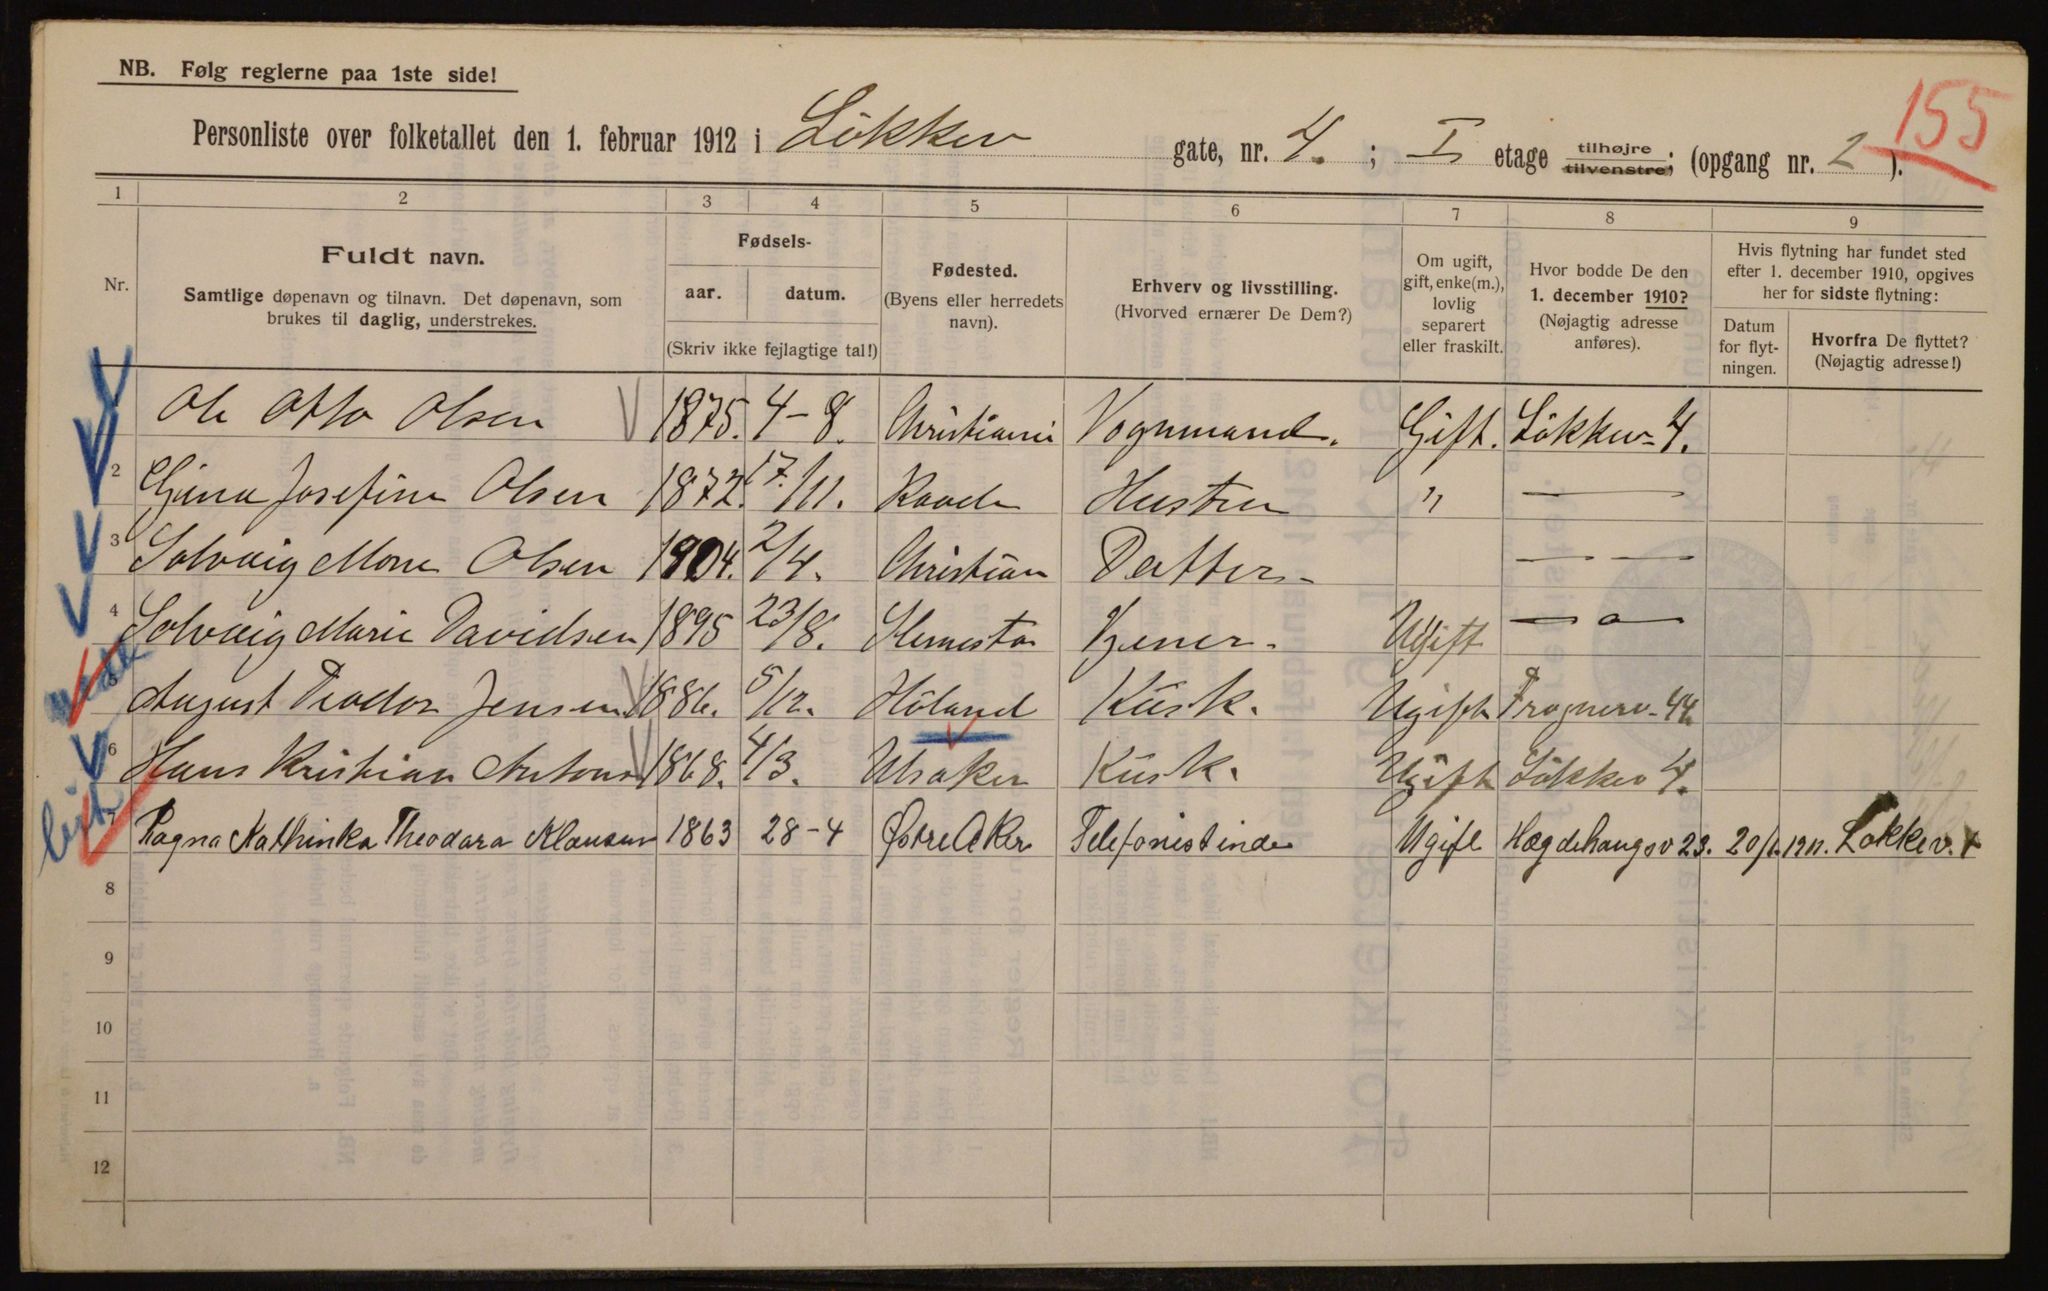 NB. Følg reglerne paa 1ste side!
155
Personliste over folketallet den 1. februar 1912 i Løkkev gate, nr. 4. ; I etage tilhøjre tilvenstre; (opgang nr. 2 ).
1 2 3 4 5 6 7 8 9
Nr.
Fuldt navn.
Samtlige døpenavn og tilnavn. Det døpenavn, som
brukes til daglig, understrekes.
Fødsels-
aar. datum.
(Skriv ikke fejlagtige tal!)
Fødested.
(Byens eller herredets
navn).
Erhverv og livsstilling.
(Hvorved ernærer De Dem?)
Om ugift,
gift, enke(m.),
lovlig
separert
eller fraskilt.
Hvor bodde De den
1. december 1910?
(Nøjagtig adresse
anføres).
Hvis flytning har fundet sted
efter 1. december 1910, opgives
her for sidste flytning:
Datum
for flyt-
ningen.
Hvorfra De flyttet?
(Nøjagtig adresse!)
Ole Otto Olsen 1875. 4-8. Christiania Vognmand. Gift. Løkkev. 4.
2 Gina Josefine Olsen 1872. 17/11. Raade Hustru " —
3 Solvaig Olsen 1904. 2/4. Christian Datter — —
4 Solvaig Marie Davidsen 1895 23/8. Ugift — " —
5 August Teodor Jensen 1886. 5/12. Høland Kusk. Ugift Frognerv. 44
6 Hans Kristian Antons 1868. 4/3. Ulsaker Kusk. Ugift Løkkev 4.
7 Ragna Kathinka Theodora Klausen 1863 28-4 Østre Aker Telefonistinde Ugift Hægdehaugsv 23. 20/1. 1911. Løkkev.
8
9
10
11
12